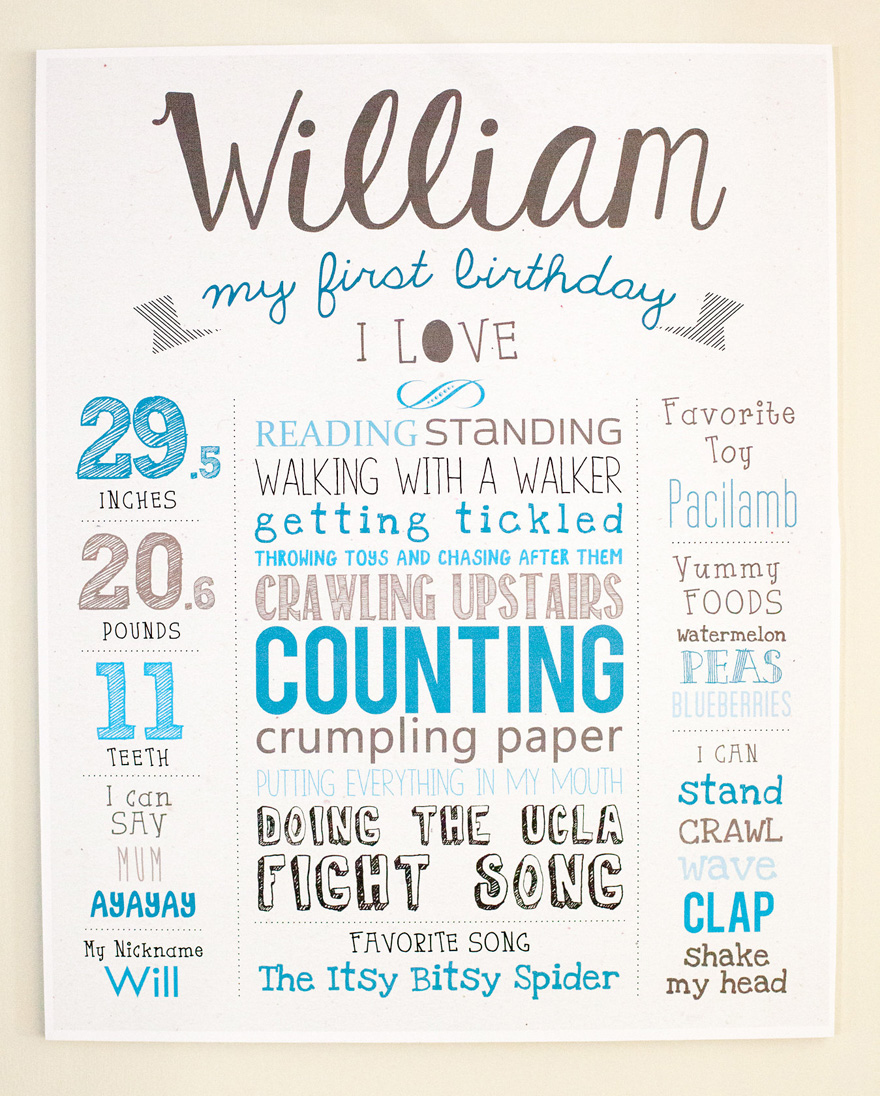 William
my first birthday
I LOVE
29.5
INCHES
20.6
POUNDS
11
TEETH
I can
SAY
MUM
AYAYAY
My Nickname
Will
READING STANDING
WALKING WITH A WALKER
getting tickled
THROWING TOYS AND CHASING AFTER THEM
CRAWLING UPSTAIRS
COUNTING
crumpling paper
PUTTING EVERYTHING IN MY MOUTH
DOING THE UCLA
FIGHT SONG
FAVORITE SONG
The Itsy Bitsy Spider
Favorite
Toy
Pacilamb
Yummy
FOODS
watermelon
PEAS
BLUEBERRIES
I CAN
stand
CRAWL
wave
CLAP
shake
my head